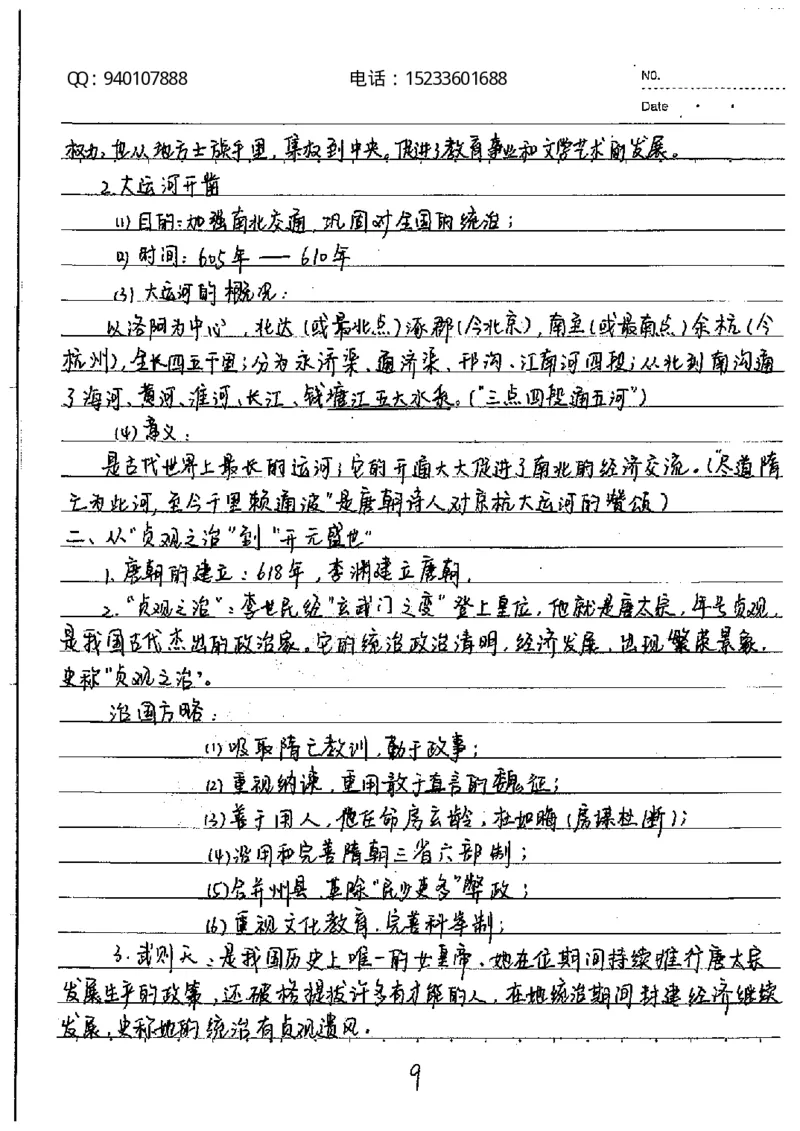 QQ：940107888 电话：15233601688 NO.
Date
权力，也从地方士族手里，集权到中央。促进了教育事业和文学艺术的发展。
2.大运河开凿
(1)目的：加强南北交通，巩固对全国的统治；
(2)时间：605年——610年
(3)大运河的概况：
以洛阿为中心，北达(或最北点)涿郡(今北京)，南至(或最南点)余杭(今
杭州)，全长四五千里；分为永济渠、通济渠、邗沟、江南河四段；从北到南沟通
了海河、黄河、淮河、长江、钱塘江五大水系。("三点四段通五河")
(4)意义：
是古代世界上最长的运河；它的开通大大促进了南北的经济交流。("尽道隋
亡为此河，至今千里赖通波"是唐朝诗人对京杭大运河的赞颂)
二、从"贞观之治"到"开元盛世"
1.唐朝的建立：618年，李渊建立唐朝.
2."贞观之治"：李世民经"玄武门之变"登上皇位，他就是唐太宗，年号贞观，
是我国古代杰出的政治家。它的统治政治清明，经济发展，出现繁荣景象，
史称"贞观之治"。
治国方略：
(1)吸取隋亡教训，勤于政事；
(2)重视纳谏，重用敢于直言的魏征；
(3)善于用人，他任命房玄龄、杜如晦(房谋杜断)；
(4)沿用和完善隋朝三省六部制；
(5)合并州县，革除"民少吏多"弊政；
(6)重视文化教育，完善科举制；
3.武则天：是我国历史上唯一的女皇帝、她在位期间持续推行唐太宗
发展生产的政策，还破格提拔许多有才能的人，在她统治期间封建经济继续
发展，史称她的统治有贞观遗风。
9